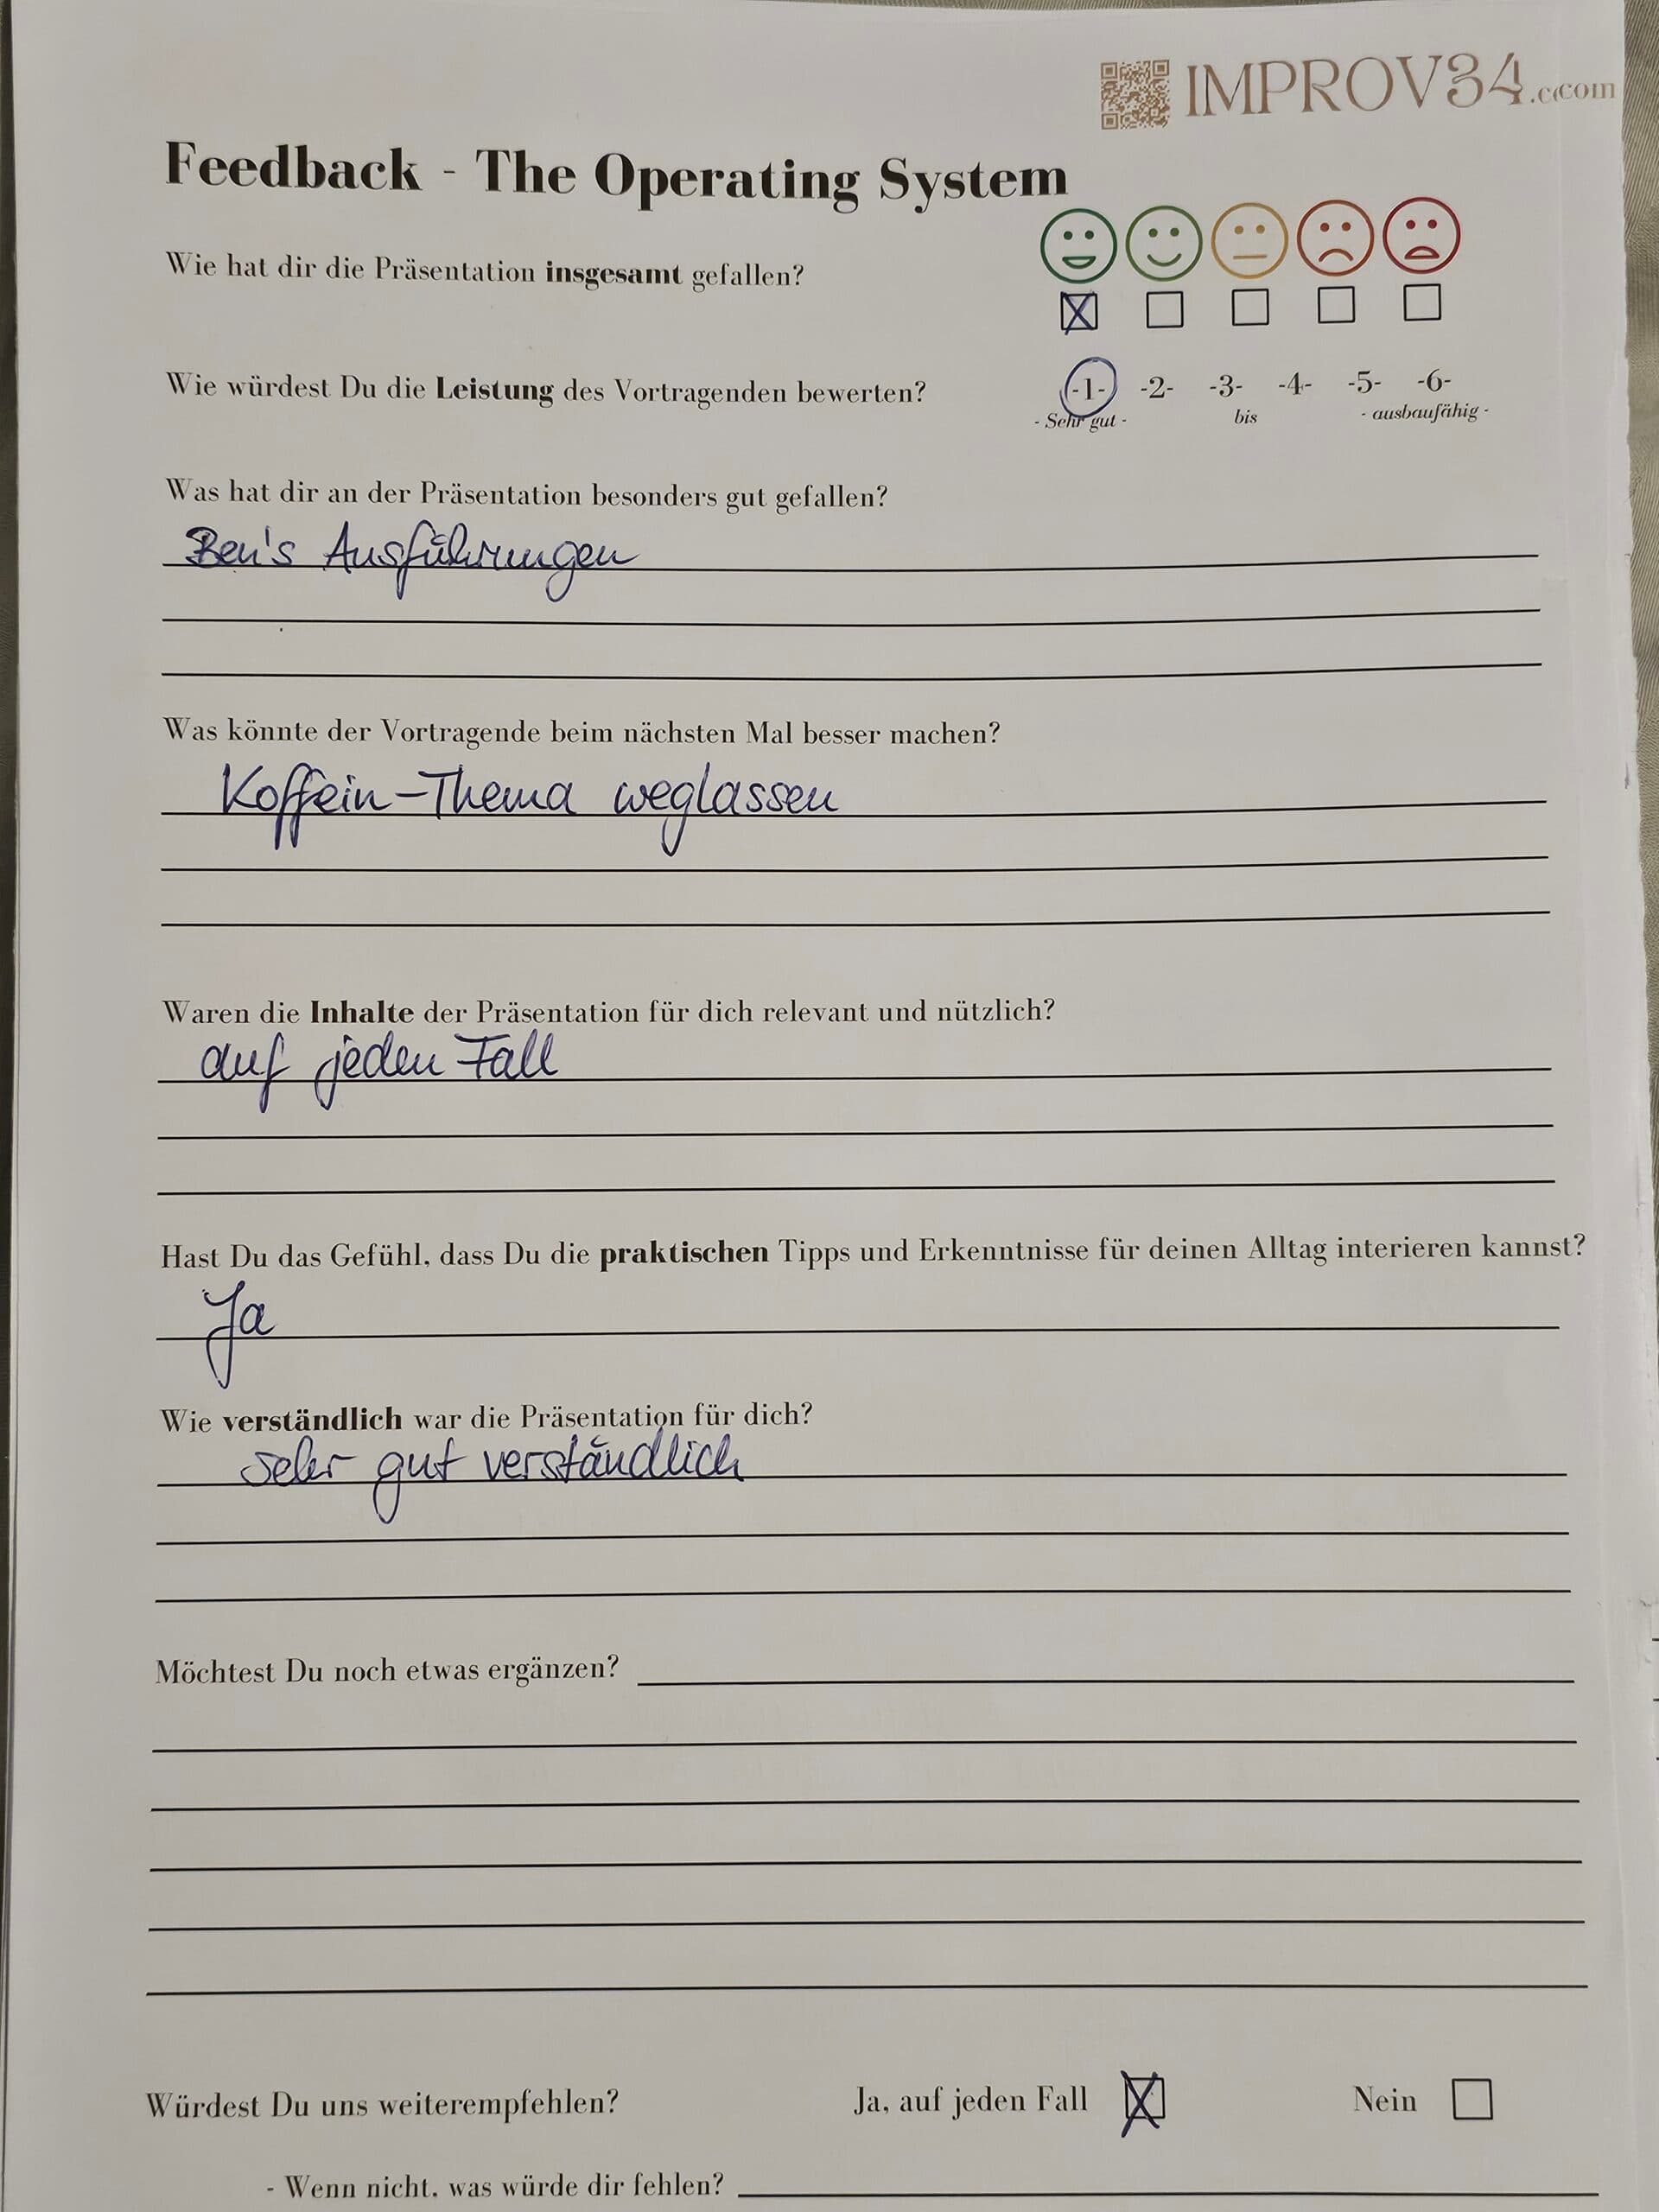 IMPROV34.c(com
Feedback - The Operating System
Wie hat dir die Präsentation insgesamt gefallen?
Wie würdest Du die Leistung des Vortragenden bewerten? -1- -2- -3- -4- -5- -6-
- Sehr gut - bis - ausbaufähig -
Was hat dir an der Präsentation besonders gut gefallen?
Ben's Ausführungen
Was könnte der Vortragende beim nächsten Mal besser machen?
Koffein-Thema weglassen
Waren die Inhalte der Präsentation für dich relevant und nützlich?
auf jeden Fall
Hast Du das Gefühl, dass Du die praktischen Tipps und Erkenntnisse für deinen Alltag interieren kannst?
Ja
Wie verständlich war die Präsentation für dich?
sehr gut verständlich
Möchtest Du noch etwas ergänzen?
Würdest Du uns weiterempfehlen? Ja, auf jeden Fall Nein
- Wenn nicht, was würde dir fehlen?